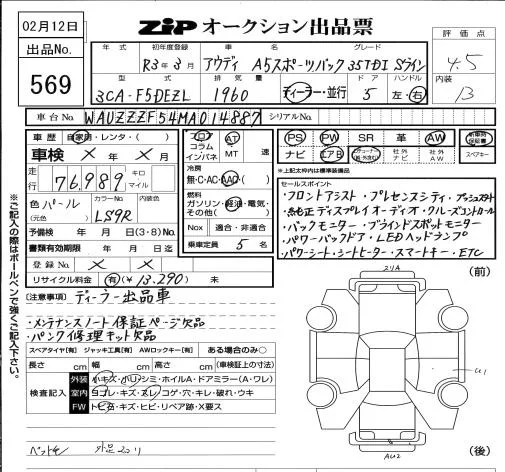 02月12日
ZIP オークション出品票
評価点
4.5
内装
B
出品No.
569
年式 初年度登録 車名 グレード
R3年3月 アウディ A5スポーツバック 35TDI Sライン
型式 排気量 ドア ハンドル
3CA-F5DEZL 1960 ディーラー・並行 5 左・右
車台No. WAUZZZF54MA014887 シリアルNo.
車歴 自家用・レンタ・( )
フロア コラム インパネ
AT MT 速
PS PW SR 革 AW 新車時保証書
ナビ エアB 社外ナビ 社外AW スペアキー
車検 × 年 × 月
※上記太枠内は標準装備品
冷房
無・C・AC・AAC
走行 76,989 キロ マイル
燃料
ガソリン・軽油・電気・その他( )
セールスポイント
・フロントアシスト・プレセンスシティ・プッシュスタート
・純正ディスプレイオーディオ・クルーズコントロール
・バックモニター・ブラインドスポットモニター
・パワーバックドア・LEDヘッドランプ
・パワーシート・シートヒーター・スマートキー・ETC
色 パール カラーNo. 内装色
(元色) LS9R
Nox 適合・非適合
予備検 年 月 日(3・8)No.
乗車定員 5 名
書類有効期限 年 月 日迄
登録No. × ×
リサイクル料金 有(¥13,290) 未
(前)
21A
[注意事項] ディーラー出品車
・メンテナンスノート保証ページ欠品
・パンク修理キット欠品
スペアタイヤ[有] ジャッキ工具[有] AWロックキー[有] ある場合のみ○
長さ cm 幅 cm 高さ cm (車検証上の寸法)
検査記入
外装 小キズ・小凹・シミ・ホイルA・ドアミラー(A・ワレ)
室内 ヨゴレ・キズ・スレ・コゲ・穴・キレ・破れ・ウキ
FW トビ石・キズ・ヒビ・リペア跡・X要ス
U1
AU2
(後)
※ご記入の際はボールペンで強くご記入下さい。